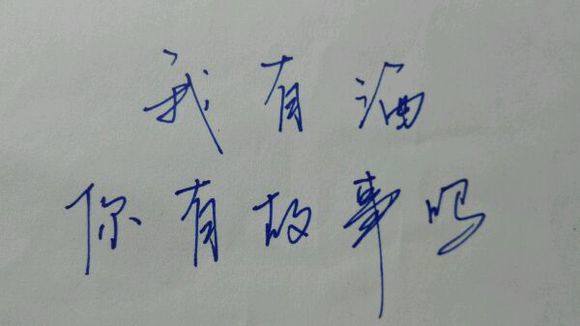 我有酒
你有故事吗